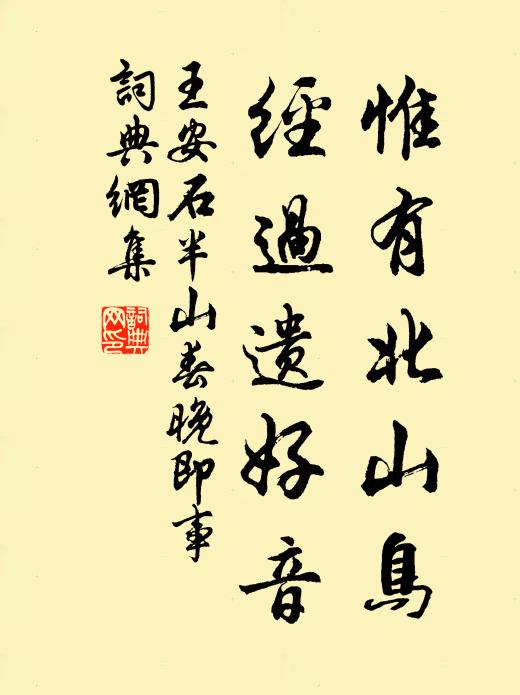 惟有北山鳥
經過遺好音
王安石半山春晚即事
詞典網集
詞典网印